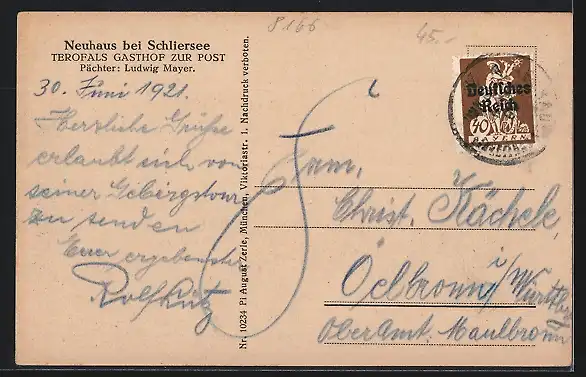 8166
45.-
Neuhaus bei Schliersee
TEROFALS GASTHOF ZUR POST
Pächter: Ludwig Mayer.
30. Juni 1921.
Herzliche Grüße
erlaubt sich von
seiner Gebirgstour
zu senden
Euer ergebenster
Rolf
Nr. 10234 Pi August Zerle, München, Viktoriastr. 1. Nachdruck verboten.
Deutsches
Reich
40
BAYERN
Fam.
Christ. Kächele
Oelbronn i/Württbg
Oberamt. Maulbronn